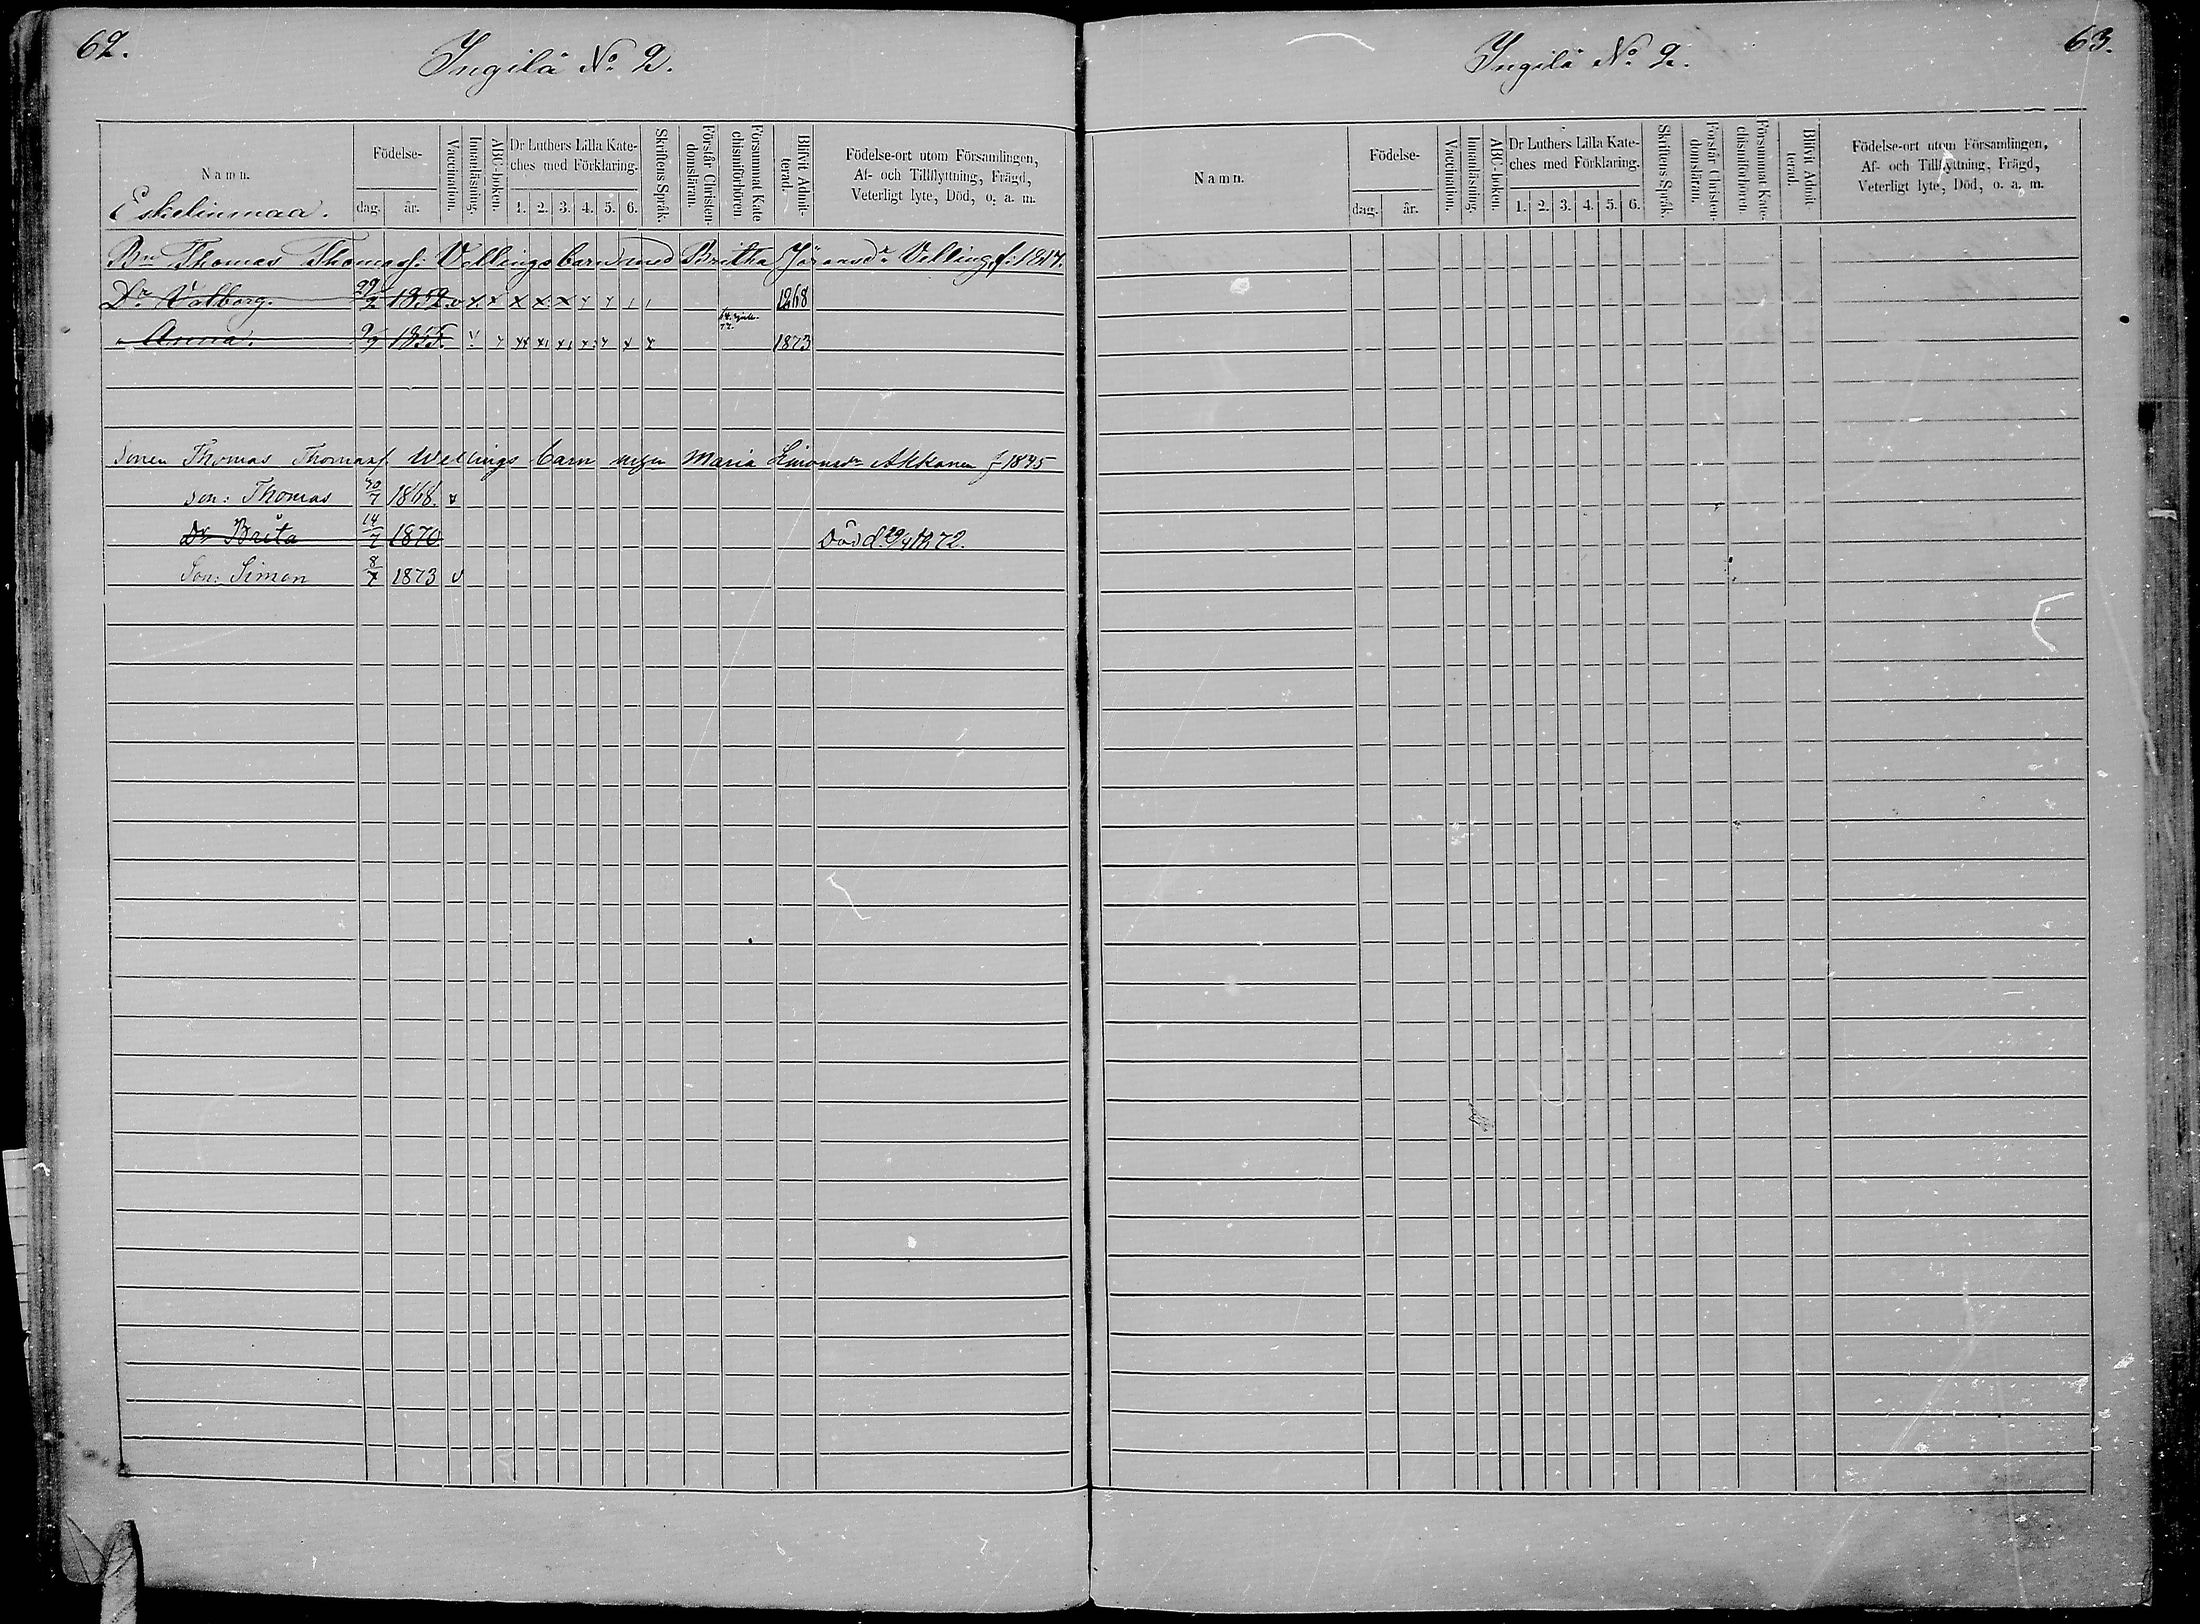 62.
Ingilä No 2.
Namn.
Födelse-
dag.
år.
Vaccination.
Innanläsning.
ABC-boken.
Dr Luthers Lilla Kate-
ches med Förklaring.
1. 2. 3. 4. 5. 6.
Skriftens Språk.
Förstår Christen-
domsläran.
Försummat Kate
chismiförhören
Blifvit Admit-
terad.
Födelse-ort utom Församlingen,
Af- och Tillflyttning, Frägd,
Veterligt lyte, Död, o. a. m.
Eskelinmaa.
Bn Thomas Thomasf: Vellings barn med Britha Jöransdr Velling f: 1827.
Dr Valborg. 29/2 1852. v x x x x x x x 1 1 1868
" Anna. 9/9 1855. v x xx x1 x1 x x x x 1873
Sonen Thomas Thomasf. Wellings barn Maria Simonsdr Akkanen f 1845
Son: Thomas 30/7 1868. v
Dr Brita 14/7 1870 Död d. 1872.
Son: Simon 8/7 1873 v
63.
Ingilä No 2.
Namn.
Födelse-
dag.
år.
Vaccination.
Innanläsning.
ABC-boken.
Dr Luthers Lilla Kate-
ches med Förklaring.
1. 2. 3. 4. 5. 6.
Skriftens Språk.
Förstår Christen-
domsläran.
Försummat Kate-
chismiförhören.
Blifvit Admit-
terad.
Födelse-ort utom Församlingen,
Af- och Tillflyttning, Frägd,
Veterligt lyte, Död, o. a. m.